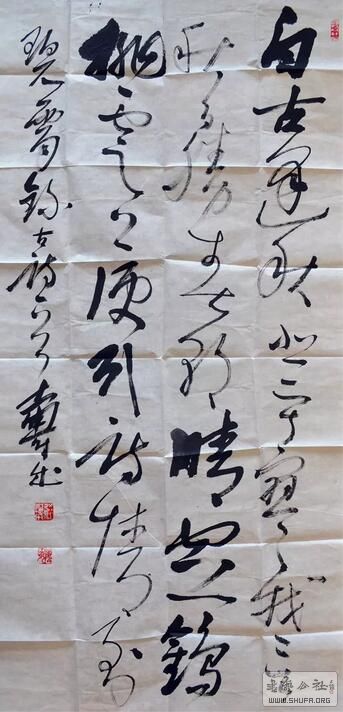 自古逢秋悲寂寥我言
秋日勝春朝晴空一鶴
排雲上便引詩情到碧霄
錄古詩一首
WWW.SHUFA.ORG